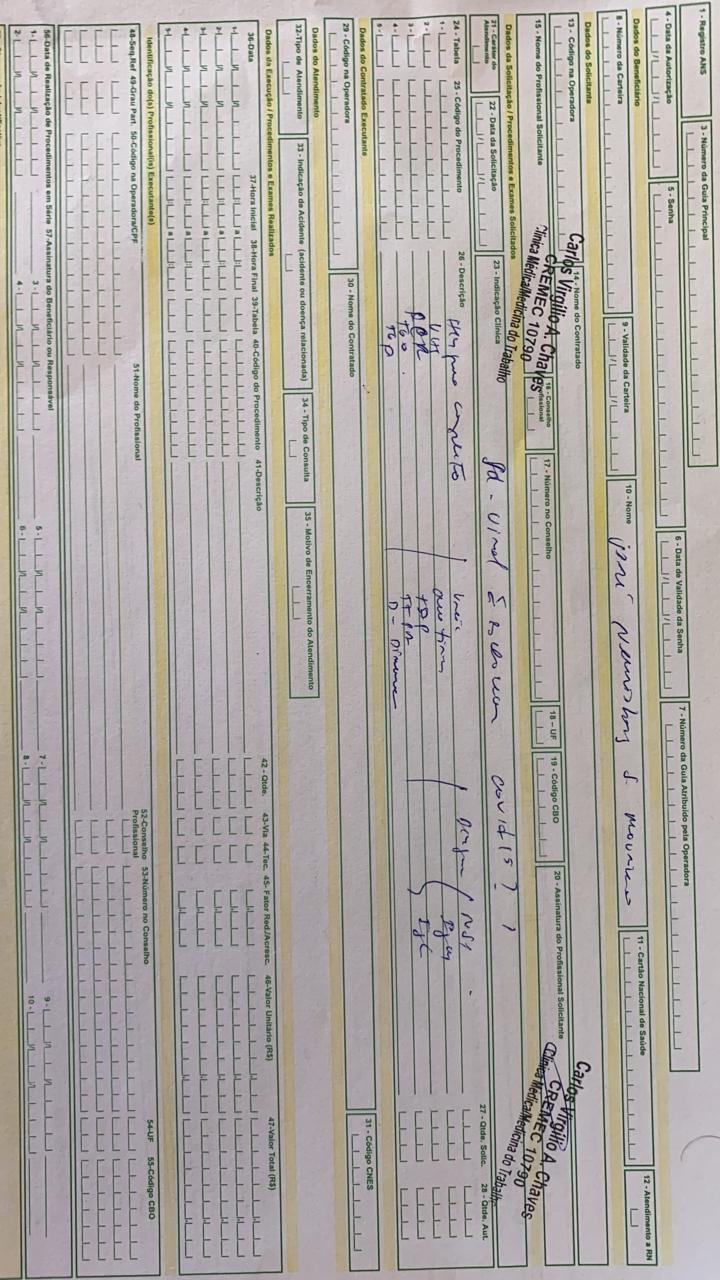 1 - Registro ANS
3 - Número da Guia Principal
4 - Data da Autorização
5 - Senha
6 - Data de Validade da Senha
7 - Número da Guia Atribuído pela Operadora
Dados do Beneficiário
8 - Número da Carteira
9 - Validade da Carteira
10 - Nome
11 - Cartão Nacional de Saúde
12 - Atendimento a RN
Dados do Solicitante
13 - Código na Operadora
14 - Nome do Contratado
Carlos Virgílio A. Chaves
CREMEC 10790
Clínica Médica/Medicina do Trabalho
15 - Nome do Profissional Solicitante
16 - Conselho Profissional
17 - Número no Conselho
18 - UF
19 - Código CBO
20 - Assinatura do Profissional Solicitante
Carlos Virgílio A. Chaves
CREMEC 10790
Clínica Médica/Medicina do Trabalho
Dados da Solicitação / Procedimentos e Exames Solicitados
21 - Caráter do Atendimento
22 - Data da Solicitação
23 - Indicação Clínica
covid 19 ?
24 - Tabela
25 - Código do Procedimento
26 - Descrição
27 - Qtde. Solic.
28 - Qtde. Aut.
1 - Hemograma completo
Ureia
Dengue
NS1
2 - VHS
IgM
3 - PCR
IgG
4 - TGO
5 - TGP
D-Dimero
Dados do Contratado Executante
29 - Código na Operadora
30 - Nome do Contratado
31 - Código CNES
Dados do Atendimento
32-Tipo de Atendimento
33 - Indicação de Acidente (acidente ou doença relacionada)
34 - Tipo de Consulta
35 - Motivo de Encerramento do Atendimento
Dados da Execução / Procedimentos e Exames Realizados
36-Data
37-Hora Inicial
38-Hora Final
39-Tabela
40-Código do Procedimento
41-Descrição
42 - Qtde.
43-Via
44-Tec.
45- Fator Red./Acresc.
46-Valor Unitário (R$)
47-Valor Total (R$)
1-
a
2-
a
3-
a
4-
a
5-
a
Identificação do(s) Profissional(is) Executante(s)
48-Seq.Ref
49-Grau Part.
50-Código na Operadora/CPF
51-Nome do Profissional
52-Conselho Profissional
53-Número no Conselho
54-UF
55-Código CBO
56-Data de Realização de Procedimentos em Série
57-Assinatura do Beneficiário ou Responsável
1-
3 -
5 -
7 -
9 -
2-
4 -
6 -
8 -
10 -